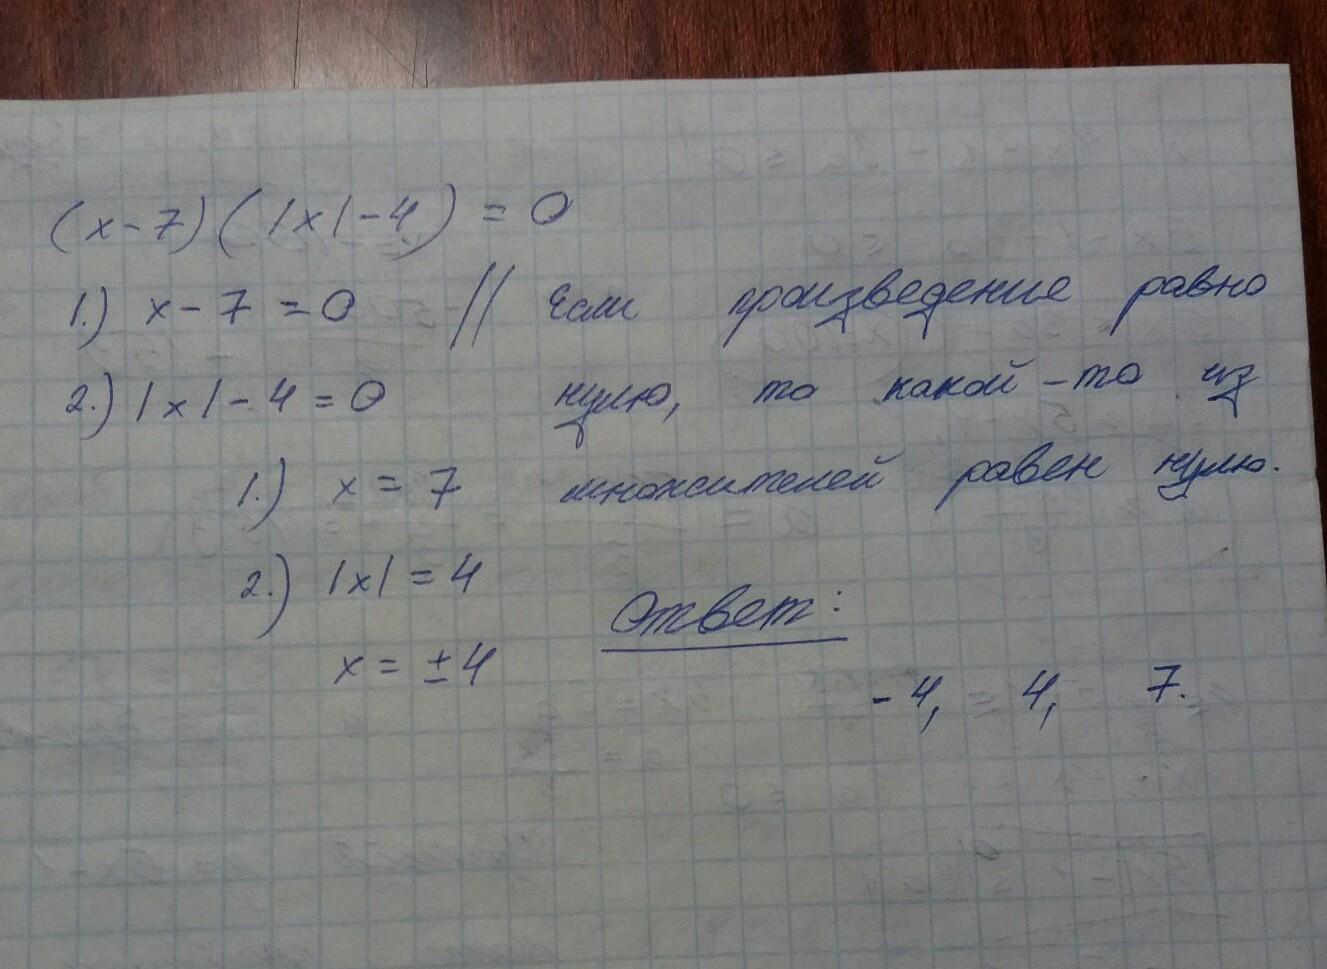 (x-7)(|x|-4) = 0
1.) x-7 = 0 // Если произведение равно
2.) |x|-4 = 0 нулю, то какой-то из
1.) x = 7 множителей равен нулю.
2.) |x| = 4
Ответ:
x = ±4
-4, 4, 7.